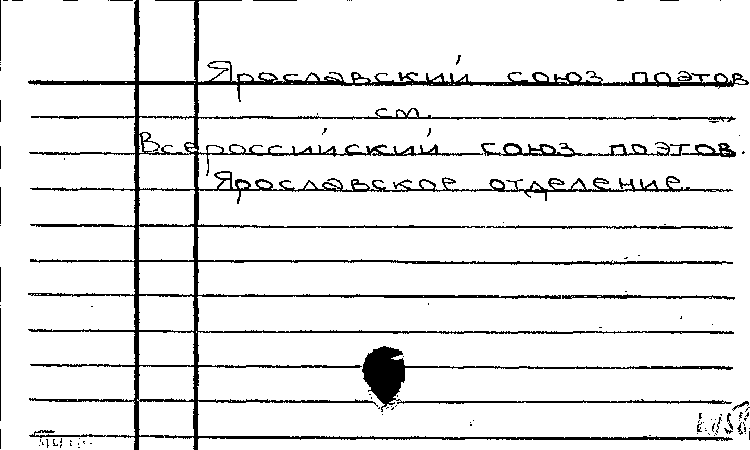 Ярославский союз поэтов
см.
Всероссийский союз поэтов.
Ярославское отделение.